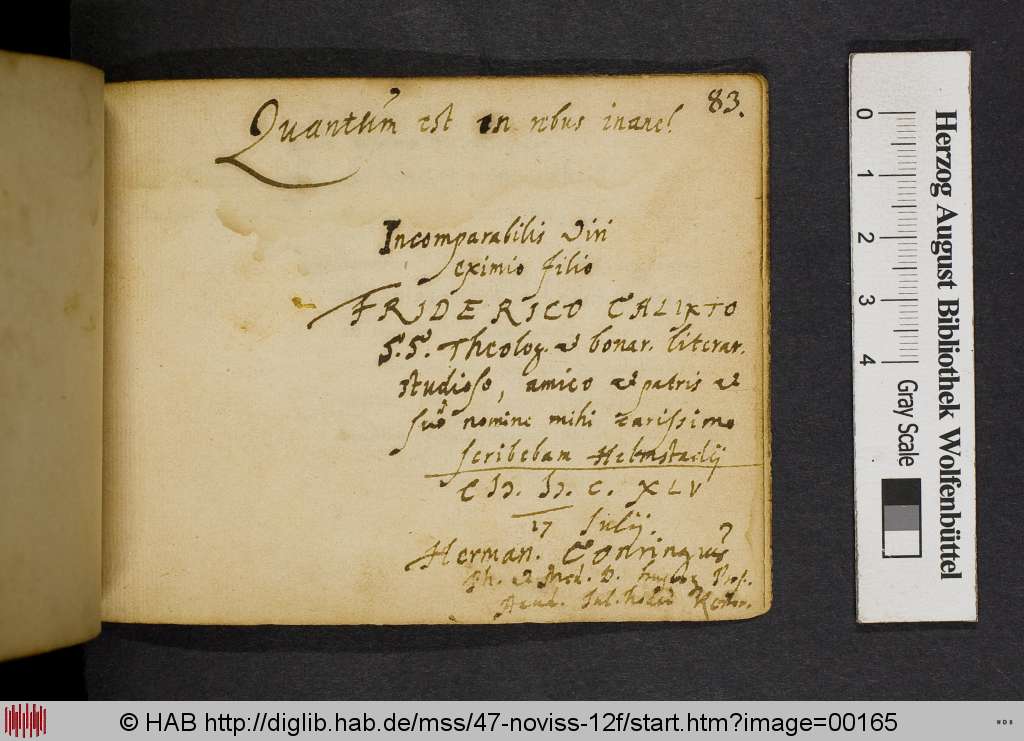 83.
Quantum est in rebus inane!
Incomparabilis Viri
eximio filio
FRIDERICO CALIXTO
S.S. Theolog. et bonar. literar.
studioso, amico et patris et
suo nomine mihi carissimo
scribebam Helmstadij
CIƆ. IƆ. C. XLV
17 Julij.
Herman. Conringius
Ph. et Med. D. Prof.
Acad. Jul. hodie Rector.
0
1
2
3
4
Gray Scale
Herzog August Bibliothek Wolfenbüttel
© HAB http://diglib.hab.de/mss/47-noviss-12f/start.htm?image=00165
WDB